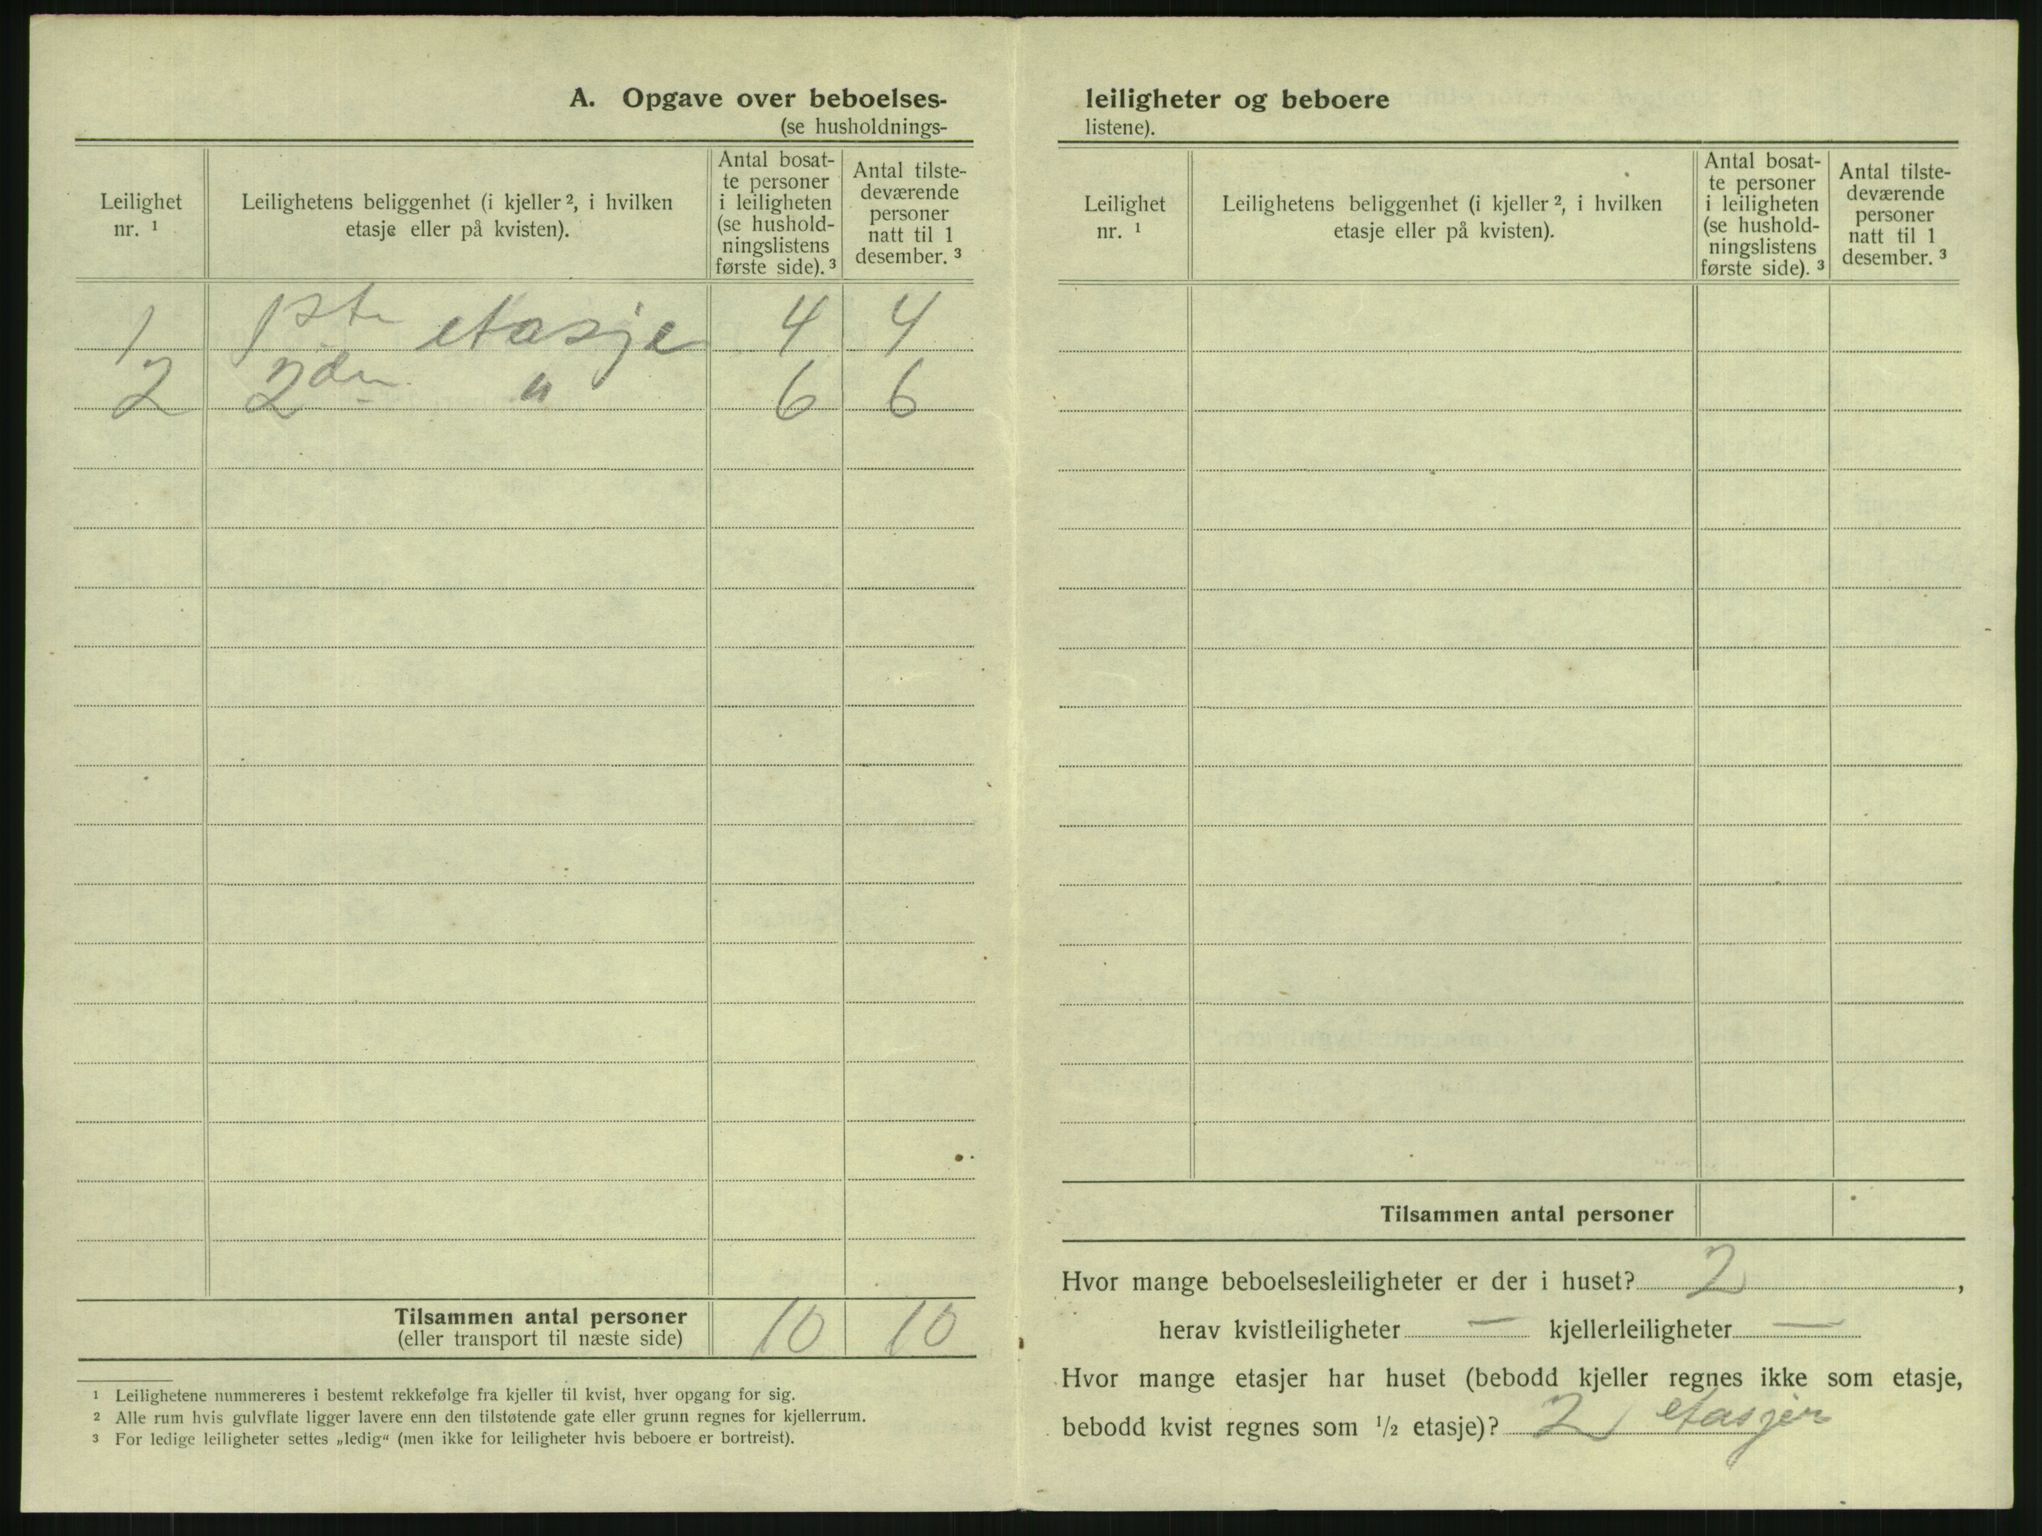 A. Opgave over beboelses-
(se husholdnings-
Leilighet nr. ¹
Leilighetens beliggenhet (i kjeller ², i hvilken etasje eller på kvisten).
Antal bosat-
te personer
i leiligheten
(se hushold-
ningslistens
første side). ³
Antal tilste-
deværende
personer
natt til 1
desember. ³
1 1ste etasje 4 4
2 2den " 6 6
Tilsammen antal personer 10 10
(eller transport til næste side)
¹ Leilighetene nummereres i bestemt rekkefølge fra kjeller til kvist, hver opgang for sig.
² Alle rum hvis gulvflate ligger lavere enn den tilstøtende gate eller grunn regnes for kjellerrum.
³ For ledige leiligheter settes „ledig“ (men ikke for leiligheter hvis beboere er bortreist).
leiligheter og beboere
listene).
Leilighet nr. ¹
Leilighetens beliggenhet (i kjeller ², i hvilken etasje eller på kvisten).
Antal bosat-
te personer
i leiligheten
(se hushold-
ningslistens
første side). ³
Antal tilste-
deværende
personer
natt til 1
desember. ³
Tilsammen antal personer
Hvor mange beboelsesleiligheter er der i huset? 2 ,
herav kvistleiligheter — kjellerleiligheter —
Hvor mange etasjer har huset (bebodd kjeller regnes ikke som etasje,
bebodd kvist regnes som ½ etasje)? 2 etasjer